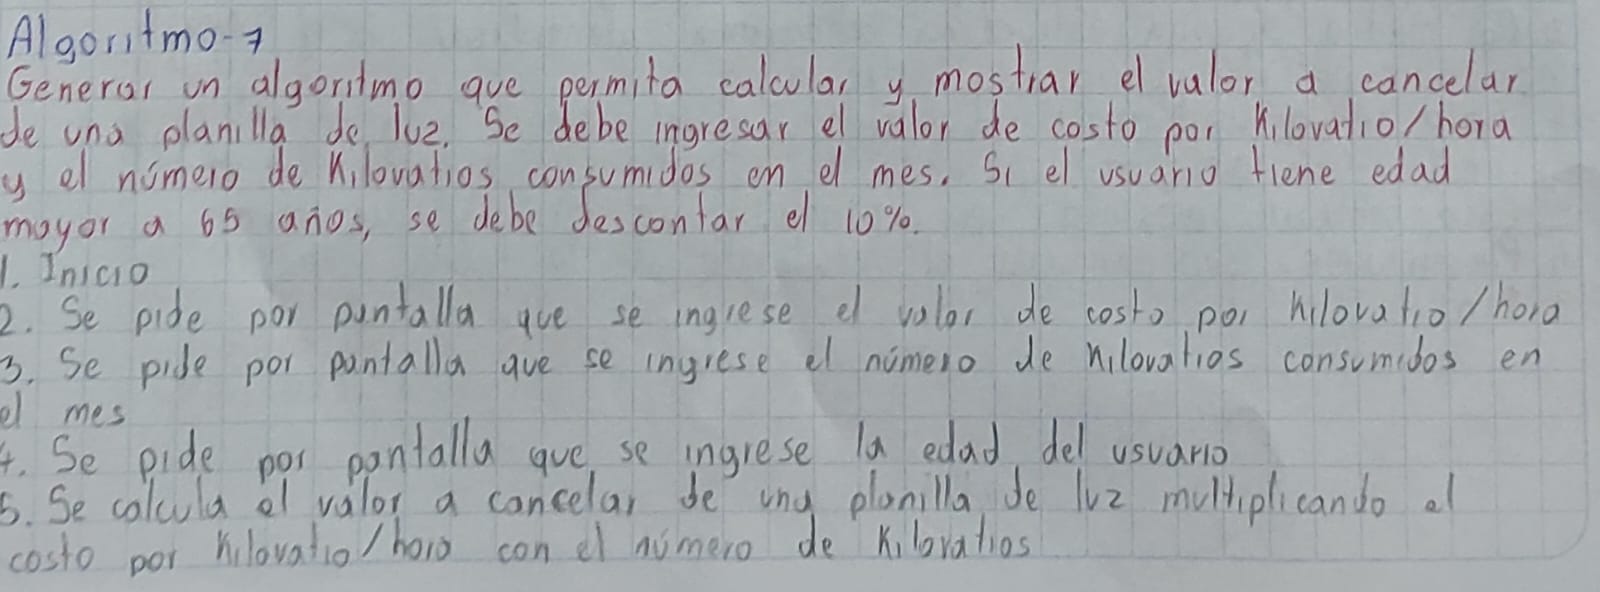 Algoritmo-7
Generar un algoritmo que permita calcular y mostrar el valor a cancelar
de una planilla de luz. Se debe ingresar el valor de costo por Kilovatio/hora
y el número de Kilovatios consumidos en el mes. Si el usuario tiene edad
mayor a 65 años, se debe descontar el 10%.
1. Inicio
2. Se pide por pantalla que se ingrese el valor de costo por kilovatio/hora
3. Se pide por pantalla que se ingrese el número de kilovatios consumidos en
el mes
4. Se pide por pantalla que se ingrese la edad del usuario
5. Se calcula el valor a cancelar de una planilla de luz multiplicando el
costo por kilovatio/hora con el número de Kilovatios